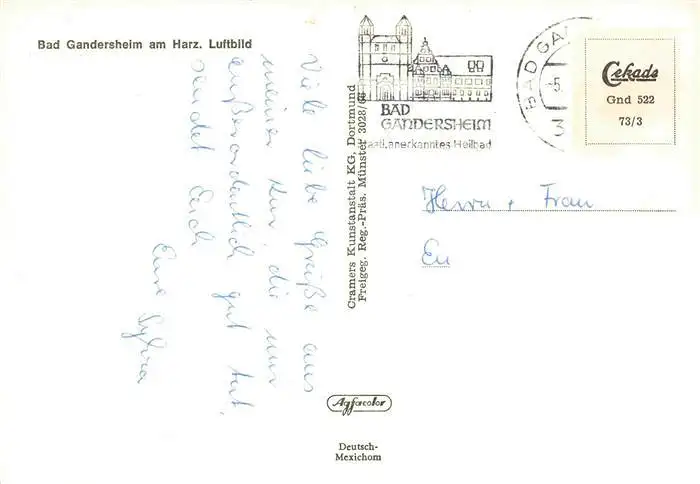 Bad Gandersheim am Harz. Luftbild
Viele liebe Grüße aus
meiner Kur, die mir
außerordentlich gut tut,
sendet Euch
Eure Sylvia
Cramers Kunstanstalt KG, Dortmund
Freigeg. Reg.-Präs. Münster 3028/66
BAD
GANDERSHEIM
staatl. anerkanntes Heilbad
BAD GA
-5.
3
Cekade
Gnd 522
73/3
Herrn + Frau
Eu
Agfacolor
Deutsch-
Mexichom